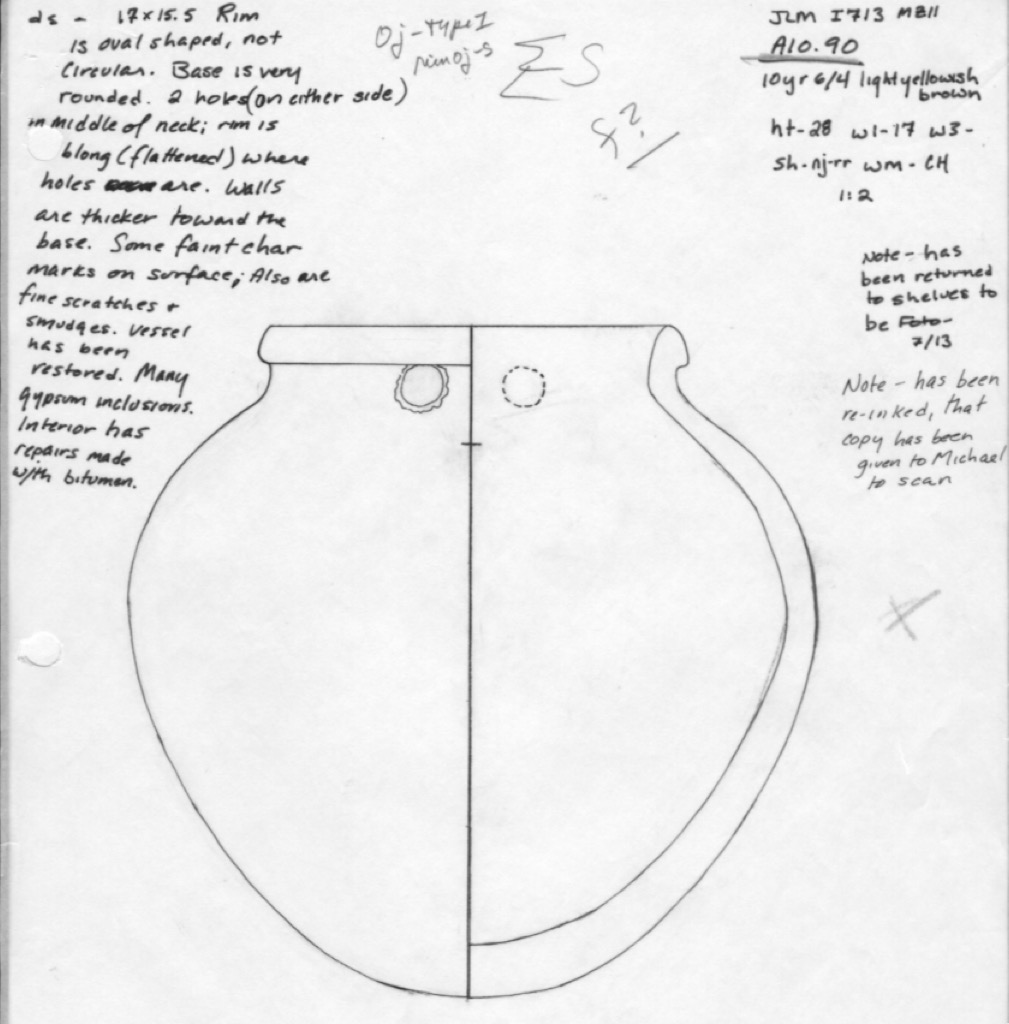 ds - 17x15.5 Rim
is oval shaped, not
circular. Base is very
rounded. 2 holes (on either side)
in middle of neck; rim is
blong (flattened) where
holes are. Walls
are thicker toward the
base. Some faint char
marks on surface; Also are
fine scratches +
smudges. Vessel
has been
restored. Many
gypsum inclusions.
Interior has
repairs made
with bitumen.
Oj-type I
rim oj-s
ΣS
JLM I713 MB11
A10.90
10yr 6/4 light yellowish
brown
ht-28 w1-17 w3-
sh-nj-rr wm-CH
1:2
Note - has
been returned
to shelves to
be Foto-
7/13
Note - has been
re-inked, that
copy has been
given to Michael
to scan